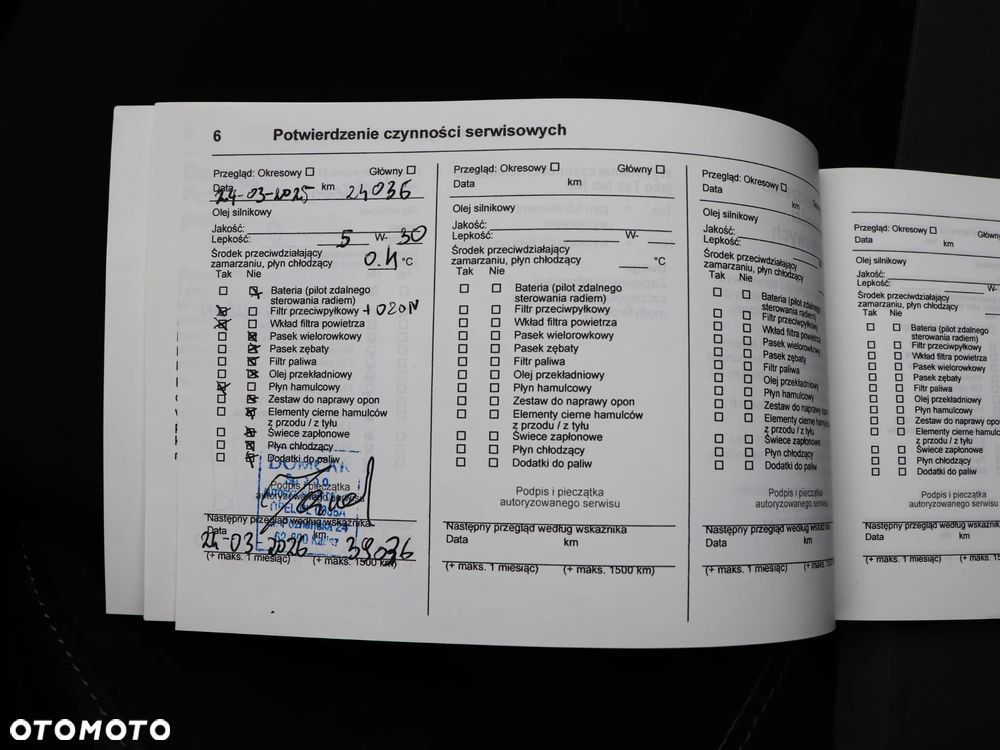 6 Potwierdzenie czynności serwisowych
Przegląd: Okresowy Główny
Data 24-03-2025 km 24036
Olej silnikowy
Jakość:
Lepkość: 5 W- 30
Środek przeciwdziałający
zamarzaniu, płyn chłodzący °C
Tak Nie
Bateria (pilot zdalnego
sterowania radiem)
Filtr przeciwpyłkowy
Wkład filtra powietrza
Pasek wielorowkowy
Pasek zębaty
Filtr paliwa
Olej przekładniowy
Płyn hamulcowy
Zestaw do naprawy opon
Elementy cierne hamulców
z przodu / z tyłu
Świece zapłonowe
Płyn chłodzący
Dodatki do paliw
Podpis i pieczątka
autoryzowanego serwisu
Następny przegląd według wskaźnika
Data 24-03-2026 km 39036
(+ maks. 1 miesiąc) (+ maks. 1500 km)
Przegląd: Okresowy Główny
Data km
Olej silnikowy
Jakość:
Lepkość: W-
Środek przeciwdziałający
zamarzaniu, płyn chłodzący °C
Tak Nie
Bateria (pilot zdalnego
sterowania radiem)
Filtr przeciwpyłkowy
Wkład filtra powietrza
Pasek wielorowkowy
Pasek zębaty
Filtr paliwa
Olej przekładniowy
Płyn hamulcowy
Zestaw do naprawy opon
Elementy cierne hamulców
z przodu / z tyłu
Świece zapłonowe
Płyn chłodzący
Dodatki do paliw
Podpis i pieczątka
autoryzowanego serwisu
Następny przegląd według wskaźnika
Data km
(+ maks. 1 miesiąc) (+ maks. 1500 km)
Przegląd: Okresowy
Data km
Olej silnikowy
Jakość:
Lepkość: W-
Środek przeciwdziałający
zamarzaniu, płyn chłodzący
Tak Nie
Bateria (pilot zdalnego
sterowania radiem)
Filtr przeciwpyłkowy
Wkład filtra powietrza
Pasek wielorowkowy
Pasek zębaty
Filtr paliwa
Olej przekładniowy
Płyn hamulcowy
Zestaw do naprawy opon
Elementy cierne hamulców
z przodu / z tyłu
Świece zapłonowe
Płyn chłodzący
Dodatki do paliw
Podpis i pieczątka
autoryzowanego serwisu
Następny przegląd według
Data km
(+ maks. 1 miesiąc) (+ maks.
Przegląd: Okresowy
Data km
Olej silnikowy
Jakość:
Lepkość: W-
Środek przeciwdziałający
zamarzaniu, płyn chłodzący
Tak Nie
Bateria (pilot zdalnego
sterowania radiem)
Filtr przeciwpyłkowy
Wkład filtra powietrza
Pasek wielorowkowy
Pasek zębaty
Filtr paliwa
Olej przekładniowy
Płyn hamulcowy
Zestaw do naprawy opon
Elementy cierne hamulców
z przodu / z tyłu
Świece zapłonowe
Płyn chłodzący
Dodatki do paliw
Podpis i pieczątka
autoryzowanego serwisu
Następny przegląd według wskaźnika
Data km
(+ maks. 1 miesiąc) (+ maks.
OTOMOTO